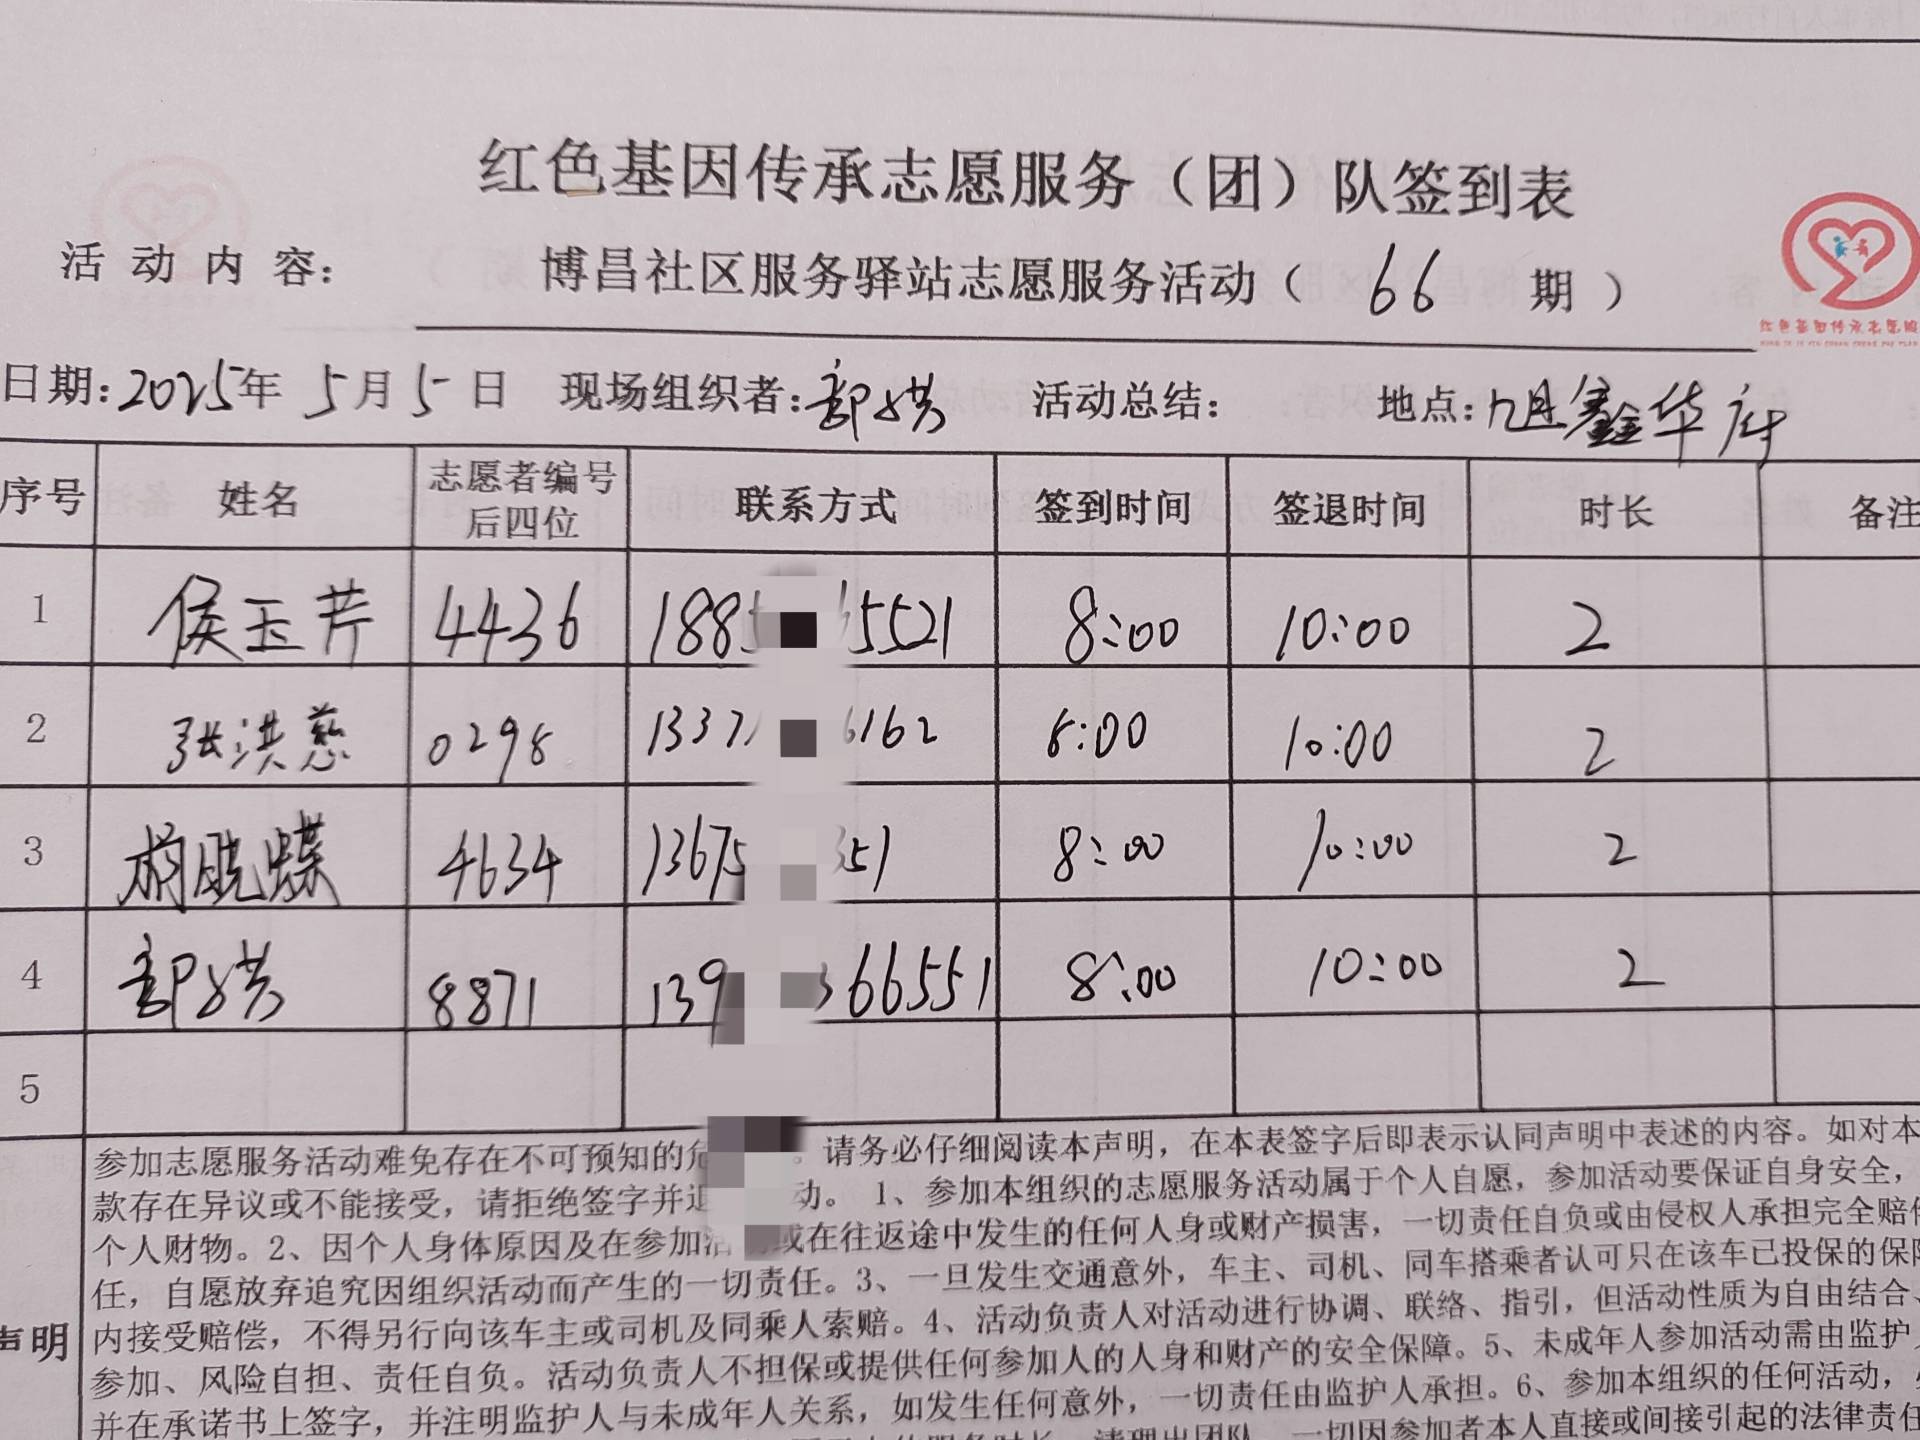 红色基因传承志愿服务（团）队签到表
活动内容： 博昌社区服务驿站志愿服务活动（ 66 期 ）
红色基因传承志愿服
日期：2025年 5月5日 现场组织者：郭洪 活动总结： 地点：旭鑫华府
序号 姓名 志愿者编号后四位 联系方式 签到时间 签退时间 时长 备注
1 侯玉芹 4436 1885 5521 8:00 10:00 2
2 张洪慈 0298 1337 6162 8:00 10:00 2
3 晓蝶 4634 13675 351 8:00 10:00 2
4 8871 139 366551 8:00 10:00 2
5
参加志愿服务活动难免存在不可预知的危 。请务必仔细阅读本声明，在本表签字后即表示认同声明中表述的内容。如对本
款存在异议或不能接受，请拒绝签字并退 动。 1、参加本组织的志愿服务活动属于个人自愿，参加活动要保证自身安全，
个人财物。2、因个人身体原因及在参加活 或在往返途中发生的任何人身或财产损害，一切责任自负或由侵权人承担完全赔偿
任，自愿放弃追究因组织活动而产生的一切责任。3、一旦发生交通意外，车主、司机、同车搭乘者认可只在该车已投保的保险
声明 内接受赔偿，不得另行向该车主或司机及同乘人索赔。4、活动负责人对活动进行协调、联络、指引，但活动性质为自由结合、
参加、风险自担、责任自负。活动负责人不担保或提供任何参加人的人身和财产的安全保障。5、未成年人参加活动需由监护人
并在承诺书上签字，并注明监护人与未成年人关系，如发生任何意外，一切责任由监护人承担。6、参加本组织的任何活动，
服务时长，清理出团队，一切因参加者本人直接或间接引起的法律责任